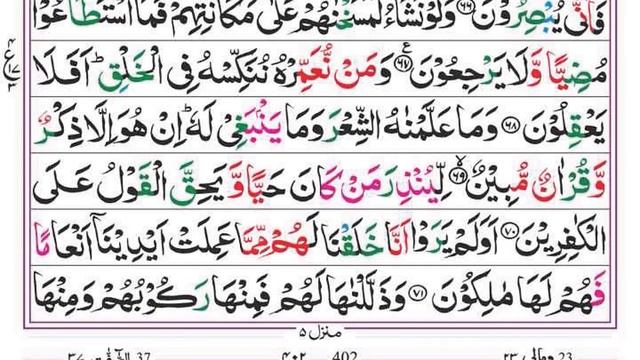 فَاَنّٰى يُبْصِرُوْنَ ﴿۶۶﴾ وَلَوْ نَشَآءُ لَمَسَخْنٰهُمْ عَلٰى مَكَانَتِهِمْ فَمَا اسْتَطَاعُوْا
مُضِيًّا وَّلَا يَرْجِعُوْنَ ﴿۶۷﴾ وَمَنْ نُّعَمِّرْهُ نُنَكِّسْهُ فِى الْخَلْقِ ؕ اَفَلَا
يَعْقِلُوْنَ ﴿۶۸﴾ وَمَا عَلَّمْنٰهُ الشِّعْرَ وَمَا يَنْۢبَغِىْ لَهٗ ؕ اِنْ هُوَ اِلَّا ذِكْرٌ
وَّقُرْاٰنٌ مُّبِيْنٌ ﴿۶۹﴾ لِّيُنْذِرَ مَنْ كَانَ حَيًّا وَّيَحِقَّ الْقَوْلُ عَلَى
الْكٰفِرِيْنَ ﴿۷۰﴾ اَوَلَمْ يَرَوْا اَنَّا خَلَقْنَا لَهُمْ مِّمَّا عَمِلَتْ اَيْدِيْنَاۤ اَنْعَامًا
فَهُمْ لَهَا مٰلِكُوْنَ ﴿۷۱﴾ وَذَلَّلْنٰهَا لَهُمْ فَمِنْهَا رَكُوْبُهُمْ وَمِنْهَا
منزل ۵
402 ۴۰۲